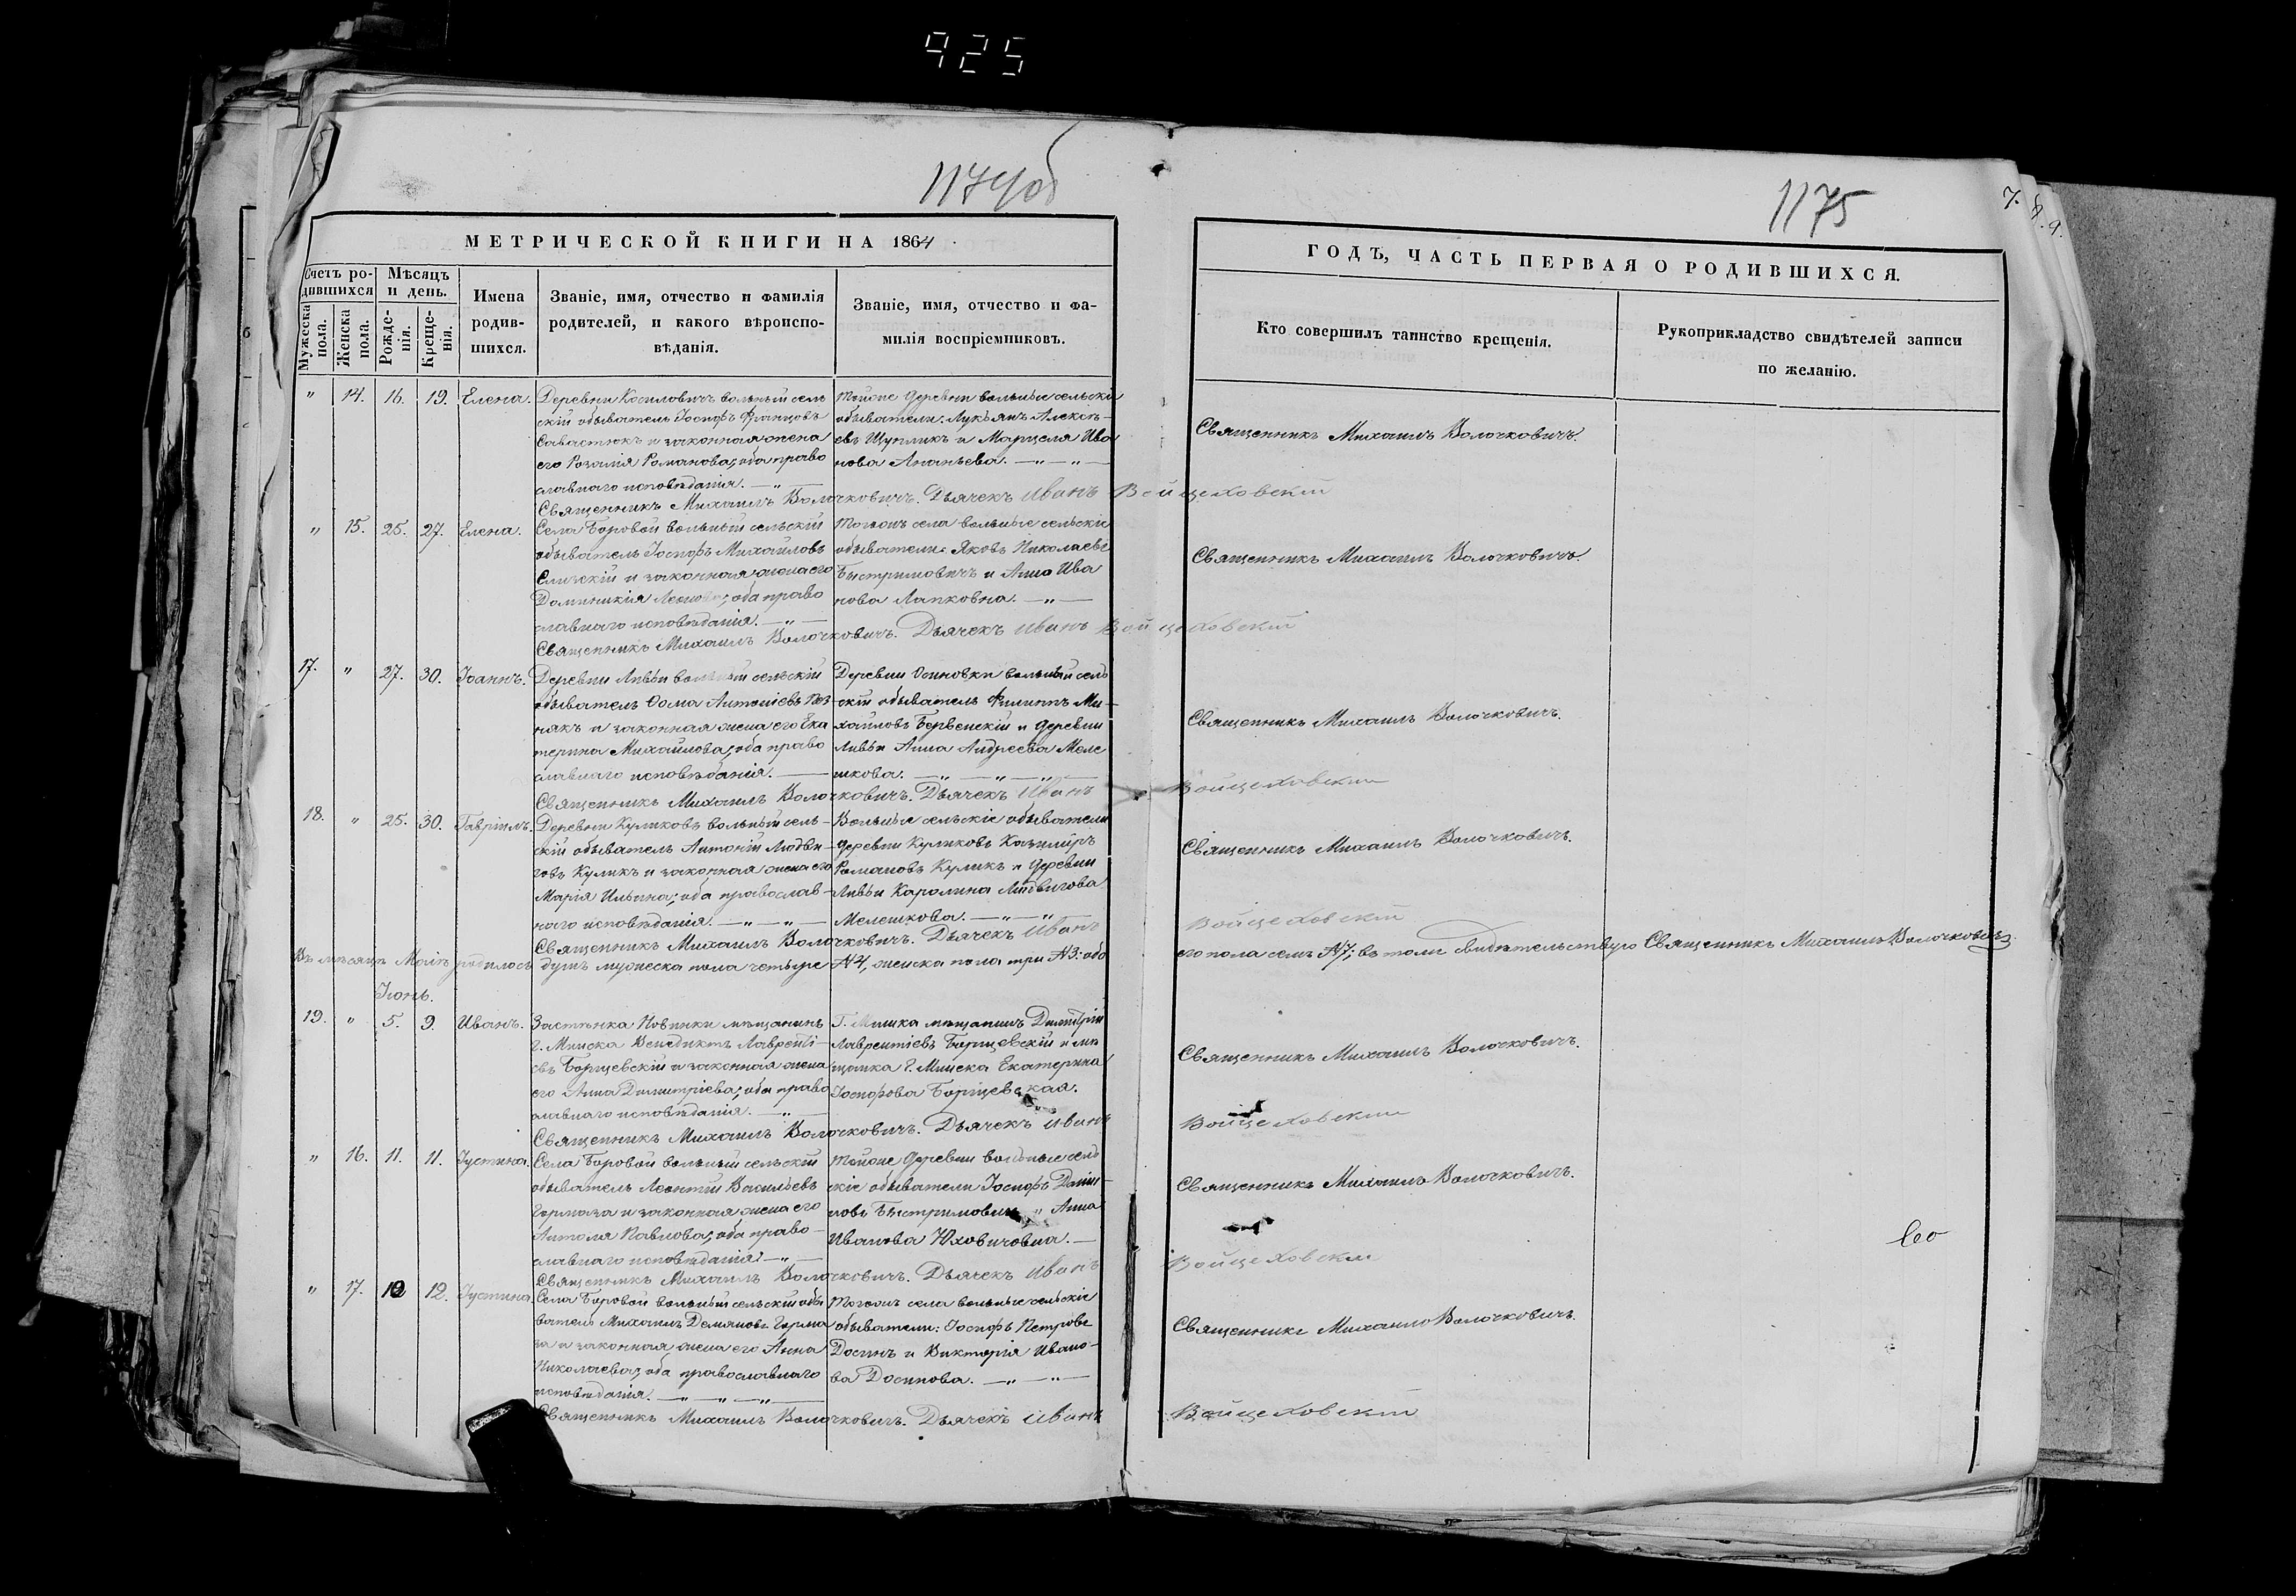 925
1174об
1175
7.
8.
9.
МЕТРИЧЕСКОЙ КНИГИ НА 1864
ГОДЪ, ЧАСТЬ ПЕРВАЯ О РОДИВШИХСЯ.
Счетъ родившихся
Мужеска пола.
Женска пола.
Мѣсяцъ и день.
Рожденія.
Крещенія.
Имена родившихся.
Званіе, имя, отчество и фамилія
родителей, и какого вѣроиспо-
вѣданія.
Званіе, имя, отчество и фа-
милія воспріемниковъ.
Кто совершилъ таинство крещенія.
Рукоприкладство свидѣтелей записи
по желанію.
" 14. 16. 19. Елена.
Деревни вольный сель
скій обыватель Іосифъ Францовъ
Савастюкъ и законная жена
его Розалія Романова; оба право
славнаго исповѣданія. — " —
Тойже деревни вольные сельскіе
обыватели: Лукьянъ Алексѣ-
евъ Щупликъ и Марцеля Ива
нова Ананьева. — " — " —
Священникъ Михаилъ Волочковичъ.
Священникъ Михаилъ Волочковичъ. Дьячекъ Иванъ Войцеховскій
" 15. 25. 27. Елена.
Села Боровой вольный сельскій
обыватель Іосифъ Михайловъ
и законная жена его
Доминикія оба право
славнаго исповѣданія. — " —
Тогожъ села вольные сельскіе
обыватели: Яковъ Николаевъ
Быстримовичъ и Анна Ива
нова Лапковна. — " —
Священникъ Михаилъ Волочковичъ.
Священникъ Михаилъ Волочковичъ. Дьячекъ Иванъ Войцеховскій
17. " 27. 30. Іоаннъ.
Деревни Ливьи вольный сельскій
обыватель Ѳома Антоніевъ
и законная жена его Ека
терина Михайлова; оба право
славнаго исповѣданія. —
Деревни Осиновки вольный сель
скій обыватель Филиппъ Ми-
хайловъ и деревни
Ливьи Анна Андреева Меле
шкова. — " — " — " —
Священникъ Михаилъ Волочковичъ.
Священникъ Михаилъ Волочковичъ. Дьячекъ Иванъ Войцеховскій
18. " 25. 30. Гавріилъ.
Деревни Куликовъ вольный сель-
скій обыватель Антоній Людви-
говъ Куликъ и законная жена его
Марія Ильина; оба православ-
наго исповѣданія. — " — " —
Вольные сельскіе обыватели
деревни Куликовъ Казимиръ
Романовъ Куликъ и деревни
Ливьи Каролина Людвигова
Мелешкова. — " — " —
Священникъ Михаилъ Волочковичъ.
Священникъ Михаилъ Волочковичъ. Дьячекъ Иванъ Войцеховскій
Въ мѣсяцѣ Маѣ родилось душъ мужеска пола четыре №4, женска пола три №3: обо
его пола семь №7; въ томъ свидѣтельствую Священникъ Михаилъ Волочковичъ
Іюнь.
19. " 5. 9. Иванъ.
Застѣнка Новинки мѣщанинъ
г. Минска Венедиктъ Лаврентi-
евъ Борщевскій и законная жена
его Анна Димитріева; оба право
славнаго исповѣданія. — " —
Г. Минска мѣщанинъ Димитрій
Лаврентіевъ Борщевскій и мѣ
щанка г. Минска Екатерина
Іосифова Борщевская.
Священникъ Михаилъ Волочковичъ.
Священникъ Михаилъ Волочковичъ. Дьячекъ Иванъ Войцеховскій
" 16. 11. 11. Іустина.
Села Боровой вольный сельскій
обыватель Леонтій Васильевъ
Гормаза и законная жена его
Антоля Павлова; оба право-
славнаго исповѣданія. — " —
Тойже деревни вольные сель
скіе обыватели Іосифъ Дани-
ловъ Анна
Иванова Юховичовна. —
Священникъ Михаилъ Волочковичъ.
Священникъ Михаилъ Волочковичъ. Дьячекъ Иванъ Войцеховскій
" 17. 10 12. Іустина.
Села Боровой вольный сельскій обы
ватель Михаилъ Демяновъ Горма
за и законная жена его Анна
Николаева; оба православнаго
исповѣданія. — " — " — " —
Тогожъ села вольные сельскіе
обыватели: Іосифъ Петровъ
Досинъ и Викторія Ивано-
ва Досинова. — " — " —
Священникъ Михаилъ Волочковичъ.
Священникъ Михаилъ Волочковичъ. Дьячекъ Иванъ Войцеховскій